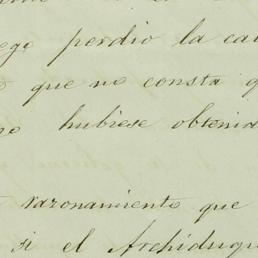 ego perdio la ca
que no consta q
hubiese obtenid
razonamiento que
si el Archiduqu